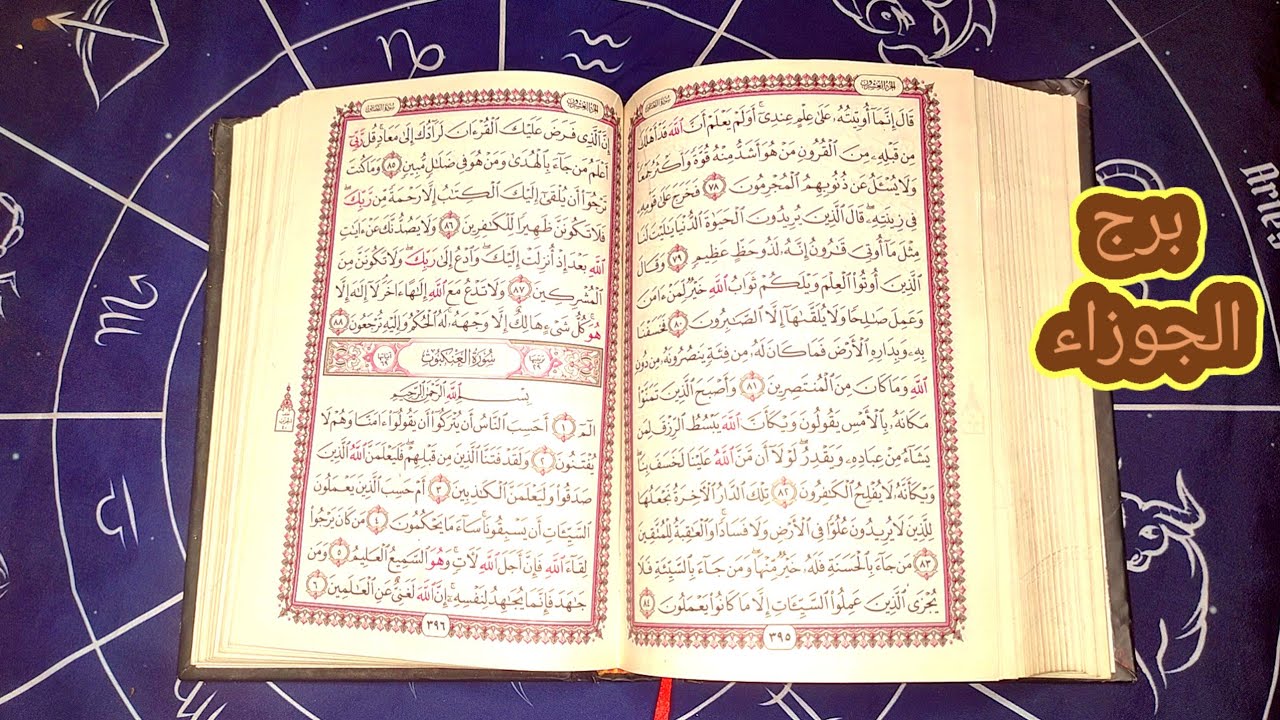 الجزء العشرون
سورة القصص
قَالَ إِنَّمَا أُوتِيتُهُۥ عَلَىٰ عِلْمٍ عِندِىٓ ۚ أَوَلَمْ يَعْلَمْ أَنَّ ٱللَّهَ قَدْ أَهْلَكَ
مِن قَبْلِهِۦ مِنَ ٱلْقُرُونِ مَنْ هُوَ أَشَدُّ مِنْهُ قُوَّةً وَأَكْثَرُ جَمْعًا
وَلَا يُسْـَٔلُ عَن ذُنُوبِهِمُ ٱلْمُجْرِمُونَ ٧٨ فَخَرَجَ عَلَىٰ قَوْمِهِۦ
فِى زِينَتِهِۦ ۖ قَالَ ٱلَّذِينَ يُرِيدُونَ ٱلْحَيَوٰةَ ٱلدُّنْيَا يَـٰلَيْتَ لَنَا
مِثْلَ مَآ أُوتِىَ قَـٰرُونُ إِنَّهُۥ لَذُو حَظٍّ عَظِيمٍ ٧٩ وَقَالَ
ٱلَّذِينَ أُوتُوا۟ ٱلْعِلْمَ وَيْلَكُمْ ثَوَابُ ٱللَّهِ خَيْرٌ لِّمَنْ ءَامَنَ
وَعَمِلَ صَـٰلِحًا وَلَا يُلَقَّىٰهَآ إِلَّا ٱلصَّـٰبِرُونَ ٨٠ فَخَسَفْنَا
بِهِۦ وَبِدَارِهِ ٱلْأَرْضَ فَمَا كَانَ لَهُۥ مِن فِئَةٍ يَنصُرُونَهُۥ مِن دُونِ
ٱللَّهِ وَمَا كَانَ مِنَ ٱلْمُنتَصِرِينَ ٨١ وَأَصْبَحَ ٱلَّذِينَ تَمَنَّوْا۟
مَكَانَهُۥ بِٱلْأَمْسِ يَقُولُونَ وَيْكَأَنَّ ٱللَّهَ يَبْسُطُ ٱلرِّزْقَ لِمَن
يَشَآءُ مِنْ عِبَادِهِۦ وَيَقْدِرُ ۖ لَوْلَآ أَن مَّنَّ ٱللَّهُ عَلَيْنَا لَخَسَفَ بِنَا ۖ
وَيْكَأَنَّهُۥ لَا يُفْلِحُ ٱلْكَـٰفِرُونَ ٨٢ تِلْكَ ٱلدَّارُ ٱلْـَٔاخِرَةُ نَجْعَلُهَا
لِلَّذِينَ لَا يُرِيدُونَ عُلُوًّا فِى ٱلْأَرْضِ وَلَا فَسَادًا ۚ وَٱلْعَـٰقِبَةُ لِلْمُتَّقِينَ
٨٣ مَن جَآءَ بِٱلْحَسَنَةِ فَلَهُۥ خَيْرٌ مِّنْهَا ۖ وَمَن جَآءَ بِٱلسَّيِّئَةِ فَلَا
يُجْزَى ٱلَّذِينَ عَمِلُوا۟ ٱلسَّيِّـَٔاتِ إِلَّا مَا كَانُوا۟ يَعْمَلُونَ ٨٤
٣٩٥
الجزء العشرون
سورة القصص
إِنَّ ٱلَّذِى فَرَضَ عَلَيْكَ ٱلْقُرْءَانَ لَرَآدُّكَ إِلَىٰ مَعَادٍ ۚ قُل رَّبِّىٓ
أَعْلَمُ مَن جَآءَ بِٱلْهُدَىٰ وَمَنْ هُوَ فِى ضَلَـٰلٍ مُّبِينٍ ٨٥ وَمَا كُنتَ
تَرْجُوٓا۟ أَن يُلْقَىٰٓ إِلَيْكَ ٱلْكِتَـٰبُ إِلَّا رَحْمَةً مِّن رَّبِّكَ ۖ
فَلَا تَكُونَنَّ ظَهِيرًا لِّلْكَـٰفِرِينَ ٨٦ وَلَا يَصُدُّنَّكَ عَنْ ءَايَـٰتِ
ٱللَّهِ بَعْدَ إِذْ أُنزِلَتْ إِلَيْكَ ۖ وَٱدْعُ إِلَىٰ رَبِّكَ ۖ وَلَا تَكُونَنَّ مِنَ
ٱلْمُشْرِكِينَ ٨٧ وَلَا تَدْعُ مَعَ ٱللَّهِ إِلَـٰهًا ءَاخَرَ ۘ لَآ إِلَـٰهَ إِلَّا
هُوَ ۚ كُلُّ شَىْءٍ هَالِكٌ إِلَّا وَجْهَهُۥ ۚ لَهُ ٱلْحُكْمُ وَإِلَيْهِ تُرْجَعُونَ ٨٨
سورة العنكبوت
بِسْمِ ٱللَّهِ ٱلرَّحْمَـٰنِ ٱلرَّحِيمِ
الٓمٓ ١ أَحَسِبَ ٱلنَّاسُ أَن يُتْرَكُوٓا۟ أَن يَقُولُوٓا۟ ءَامَنَّا وَهُمْ لَا
يُفْتَنُونَ ٢ وَلَقَدْ فَتَنَّا ٱلَّذِينَ مِن قَبْلِهِمْ ۖ فَلَيَعْلَمَنَّ ٱللَّهُ ٱلَّذِينَ
صَدَقُوا۟ وَلَيَعْلَمَنَّ ٱلْكَـٰذِبِينَ ٣ أَمْ حَسِبَ ٱلَّذِينَ يَعْمَلُونَ
ٱلسَّيِّـَٔاتِ أَن يَسْبِقُونَا ۚ سَآءَ مَا يَحْكُمُونَ ٤ مَن كَانَ يَرْجُوا۟
لِقَآءَ ٱللَّهِ فَإِنَّ أَجَلَ ٱللَّهِ لَـَٔاتٍ ۚ وَهُوَ ٱلسَّمِيعُ ٱلْعَلِيمُ ٥ وَمَن
جَـٰهَدَ فَإِنَّمَا يُجَـٰهِدُ لِنَفْسِهِۦٓ ۚ إِنَّ ٱللَّهَ لَغَنِىٌّ عَنِ ٱلْعَـٰلَمِينَ ٦
٣٩٦
برج
الجوزاء
Aries